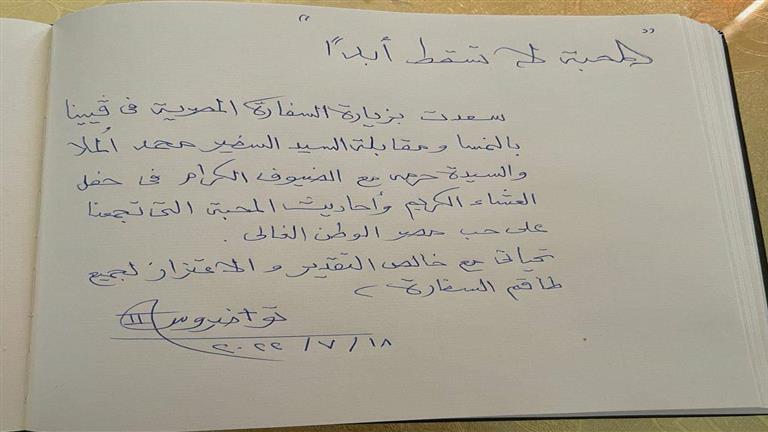 "المحبة لا تسقط أبدًا"
سعدت بزيارة السفارة المصرية فى ڤيينا
بالنمسا ومقابلة السيد السفير محمد المُلا
والسيدة حرمه مع الضيوف الكرام فى حفل
العشاء الكريم وأحاديث المحبة التى تجمعنا
على حب مصر الوطن الغالى .
تحياتى مع خالص التقدير والاعتزاز لجميع
طاقم السفارة
تواضروس II
١٨ / ٧ / ٢٠٢٢